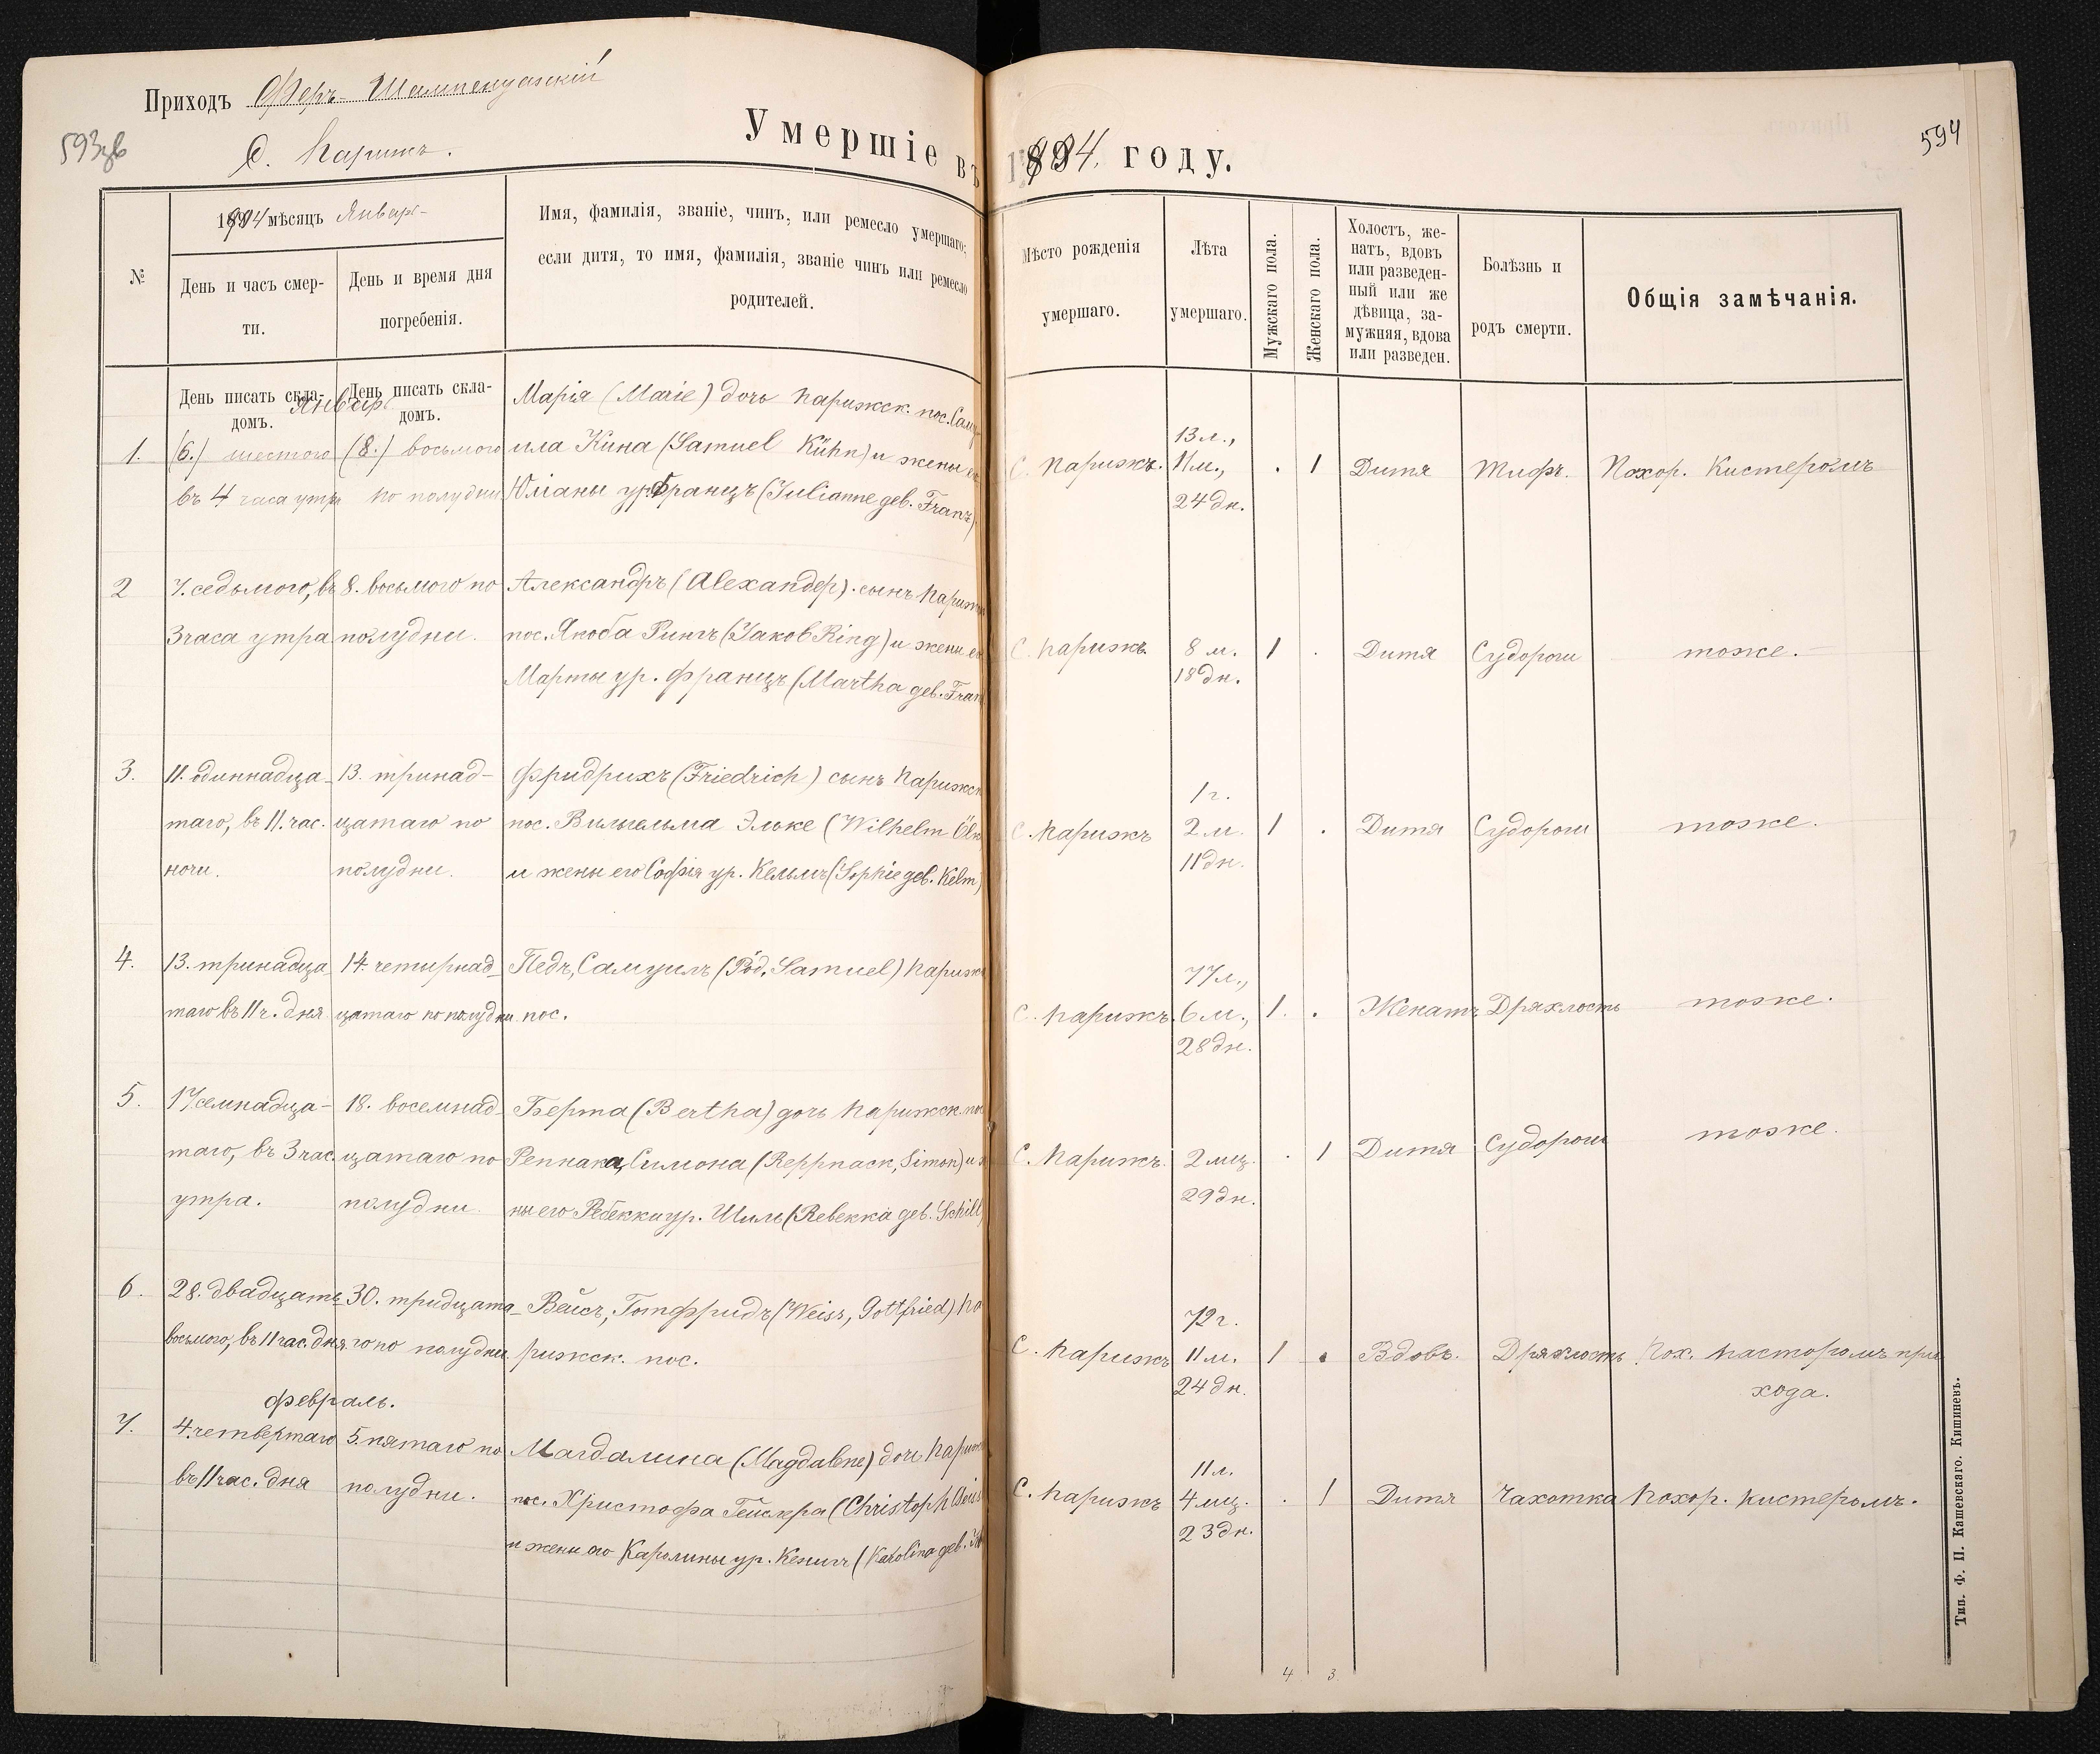 Приходъ Феръ-Шампенуазскій
593об
С. Парижъ.
Умершіе въ 1894. году.
594
№
1894 мѣсяцъ Январь
День и часъ смер-
ти.
День и время дня
погребенія.
Имя, фамилія, званіе, чинъ, или ремесло умершаго;
если дитя, то имя, фамилія, званіе чинъ или ремесло
родителей.
Мѣсто рожденія
умершаго.
Лѣта
умершаго.
Мужскаго пола.
Женскаго пола.
Холостъ, же-
натъ, вдовъ
или разведен-
ный или же
дѣвица, за-
мужняя, вдова
или разведен.
Болѣзнь и
родъ смерти.
Общія замѣчанія.
День писать скла-
домъ.
День писать скла-
домъ.
Январь
1.
(6.) шестого
въ 4 часа утра
(8.) восьмого
по полудни
Марія (Marie) дочь Парижск. пос. Саму-
ила Кина (Samuel Kühn) и жены его
Юліаны ур. Францъ (Julianne geb. Franz)
С. Парижъ.
13 л.,
11 м.,
24 дн.
. 1
Дитя
Тифъ.
Похор. Кистеромъ
2
7. седьмого, въ
3 часа утра
8. восьмого по
полудни.
Александръ (Alexander). сынъ Парижск
пос. Якоба Рингъ (Jakob Ring) и жены его
Марты ур. Францъ (Martha geb. Fran
С. Парижъ
8 м.
18 дн.
1 .
Дитя
Судороги
тоже.
3.
11. одиннадца-
таго, въ 11. час.
ночи.
13. тринад-
цатаго по
полудни.
Фридрихъ (Friedrich) сынъ Парижск
пос. Вильгельма Эльке (Wilhelm Ölk
и жены его Софія ур. Кельмъ (Sophie geb. Kelm)
С. Парижъ
1 г.
2 м.
11 дн.
1 .
Дитя
Судороги
тоже.
4.
13. тринадца
таго въ 11 ч. дня
14. четырнад-
цатаго по полудни
Педъ, Самуилъ (Pöd, Samuel) Парижск
пос.
С. Парижъ.
77 л.,
6 м.,
28 дн.
1. .
Женатъ
Дряхлость
тоже.
5.
17 семнадца-
таго, въ 3 час.
утра.
18. восемнад-
цатаго по
полудни.
Берта (Bertha) дочь Парижск. пос
Реппака, Симона (Reppnack, Simon) и же
ны его Ребекка ур. Шиль (Rebekka geb. Schill)
С. Парижъ.
2 мц.
29 дн.
. 1
Дитя
Судороги
тоже.
6.
28. двадцать
восьмого, въ 11 час. дня
30. тридцата-
го по полудни.
Вейсъ, Готфридъ (Weiss, Gottfried) Па
рижск. пос.
С. Парижъ
72 г.
11 м.
24 дн.
1 .
Вдовъ.
Дряхлость
Пох. Пасторомъ при
хода.
Февраль.
7.
4. четвертаго
въ 11 час. дня
5. пятаго по
полудни.
Магдалина (Magdalene) дочь Париж
пос. Христофа Гейслера (Christoph
и жены его Каролины ур. Кенигъ (Karolina geb.
С. Парижъ
11 л.
4 мц.
23 дн.
. 1
Дитя
Чахотка
Похор. кистеромъ.
4 3.
Тип. Ф. П. Кашевскаго. Кишиневъ.